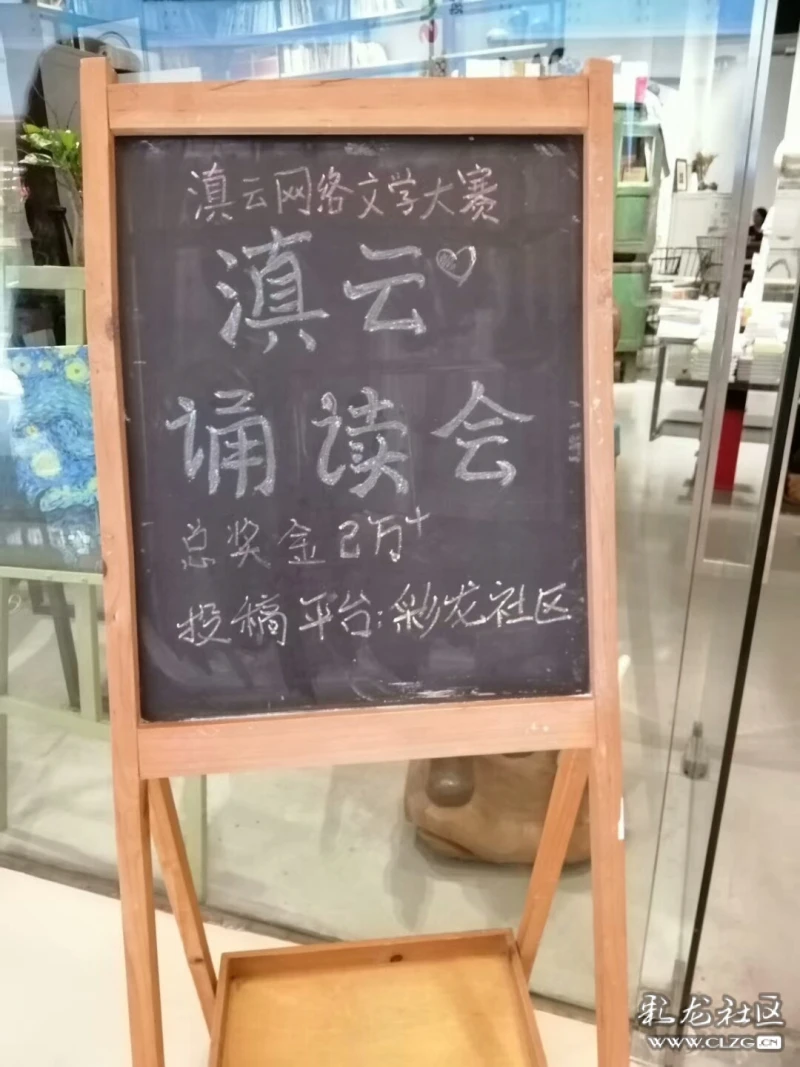 滇云网络文学大赛
滇云
诵读会
总奖金2万+
投稿平台:彩龙社区
彩龙社区
WWW.CLZG.CN